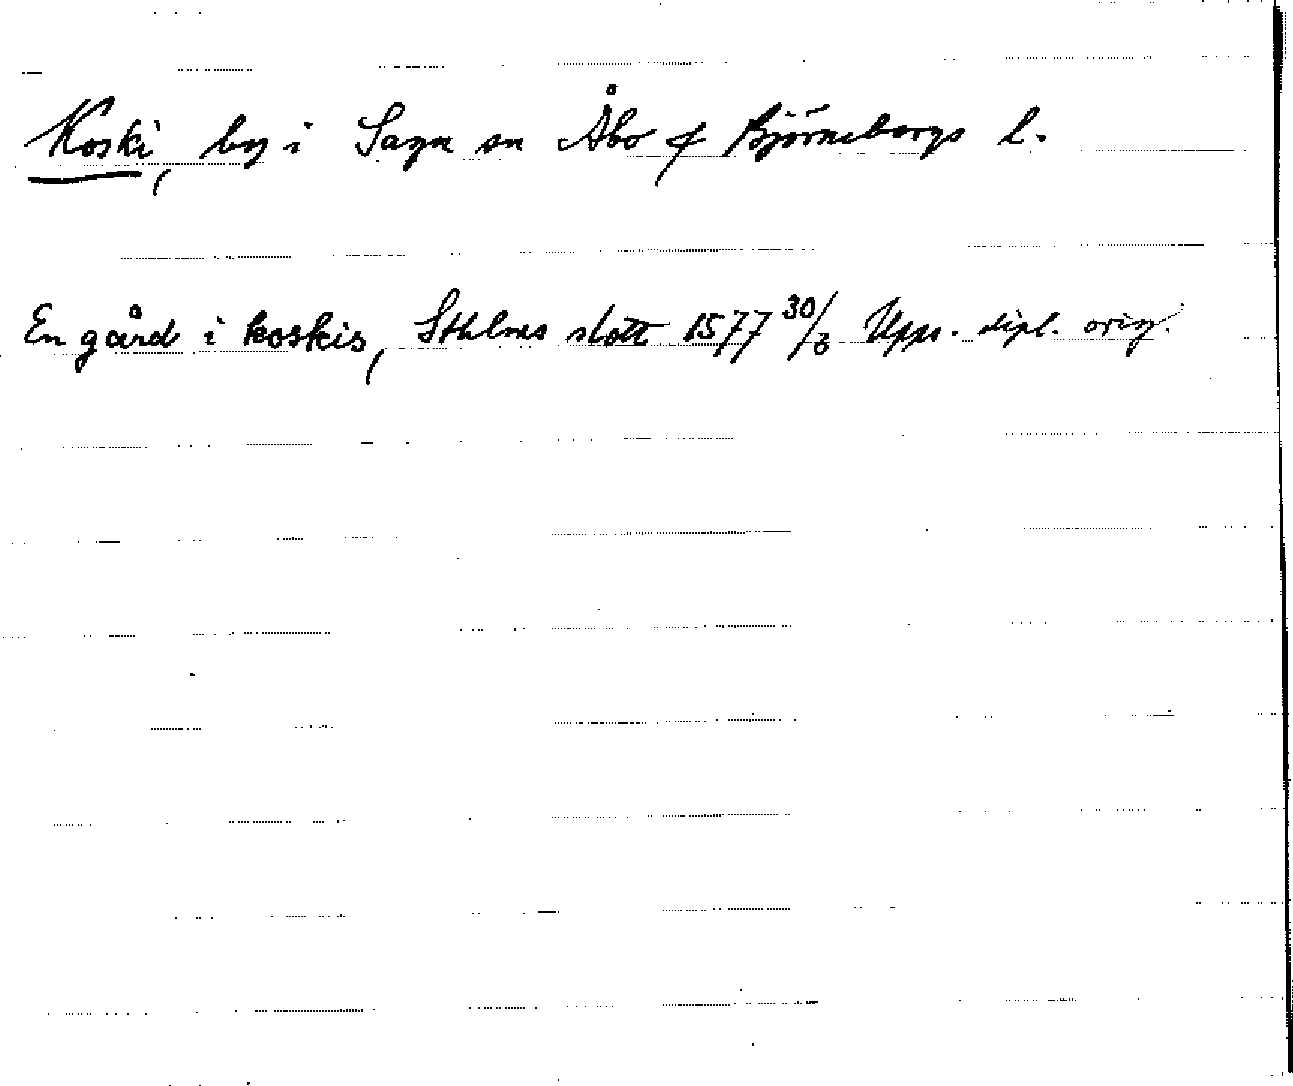 Koski, by i Sagu sn Åbo & Björneborgs l.
En gård i koskis, Sthlms slott 1577 30/3 Upps. dipl. orig.